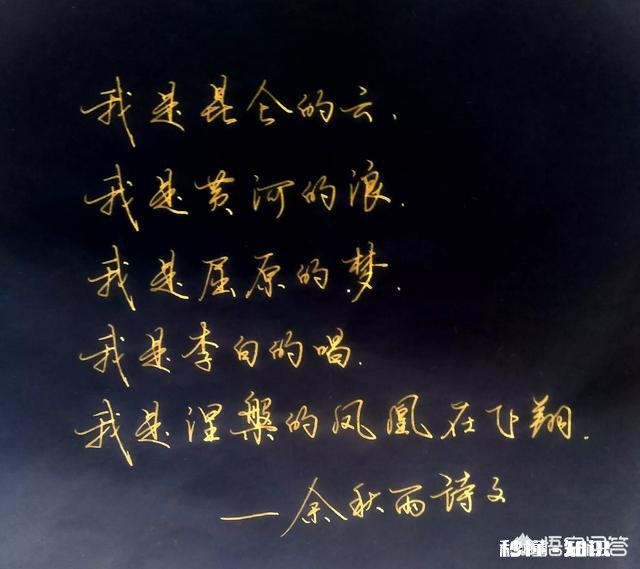 我是昆仑的云.
我是黄河的浪.
我是屈原的梦.
我是李白的唱.
我是涅槃的凤凰在飞翔.
—余秋雨诗文
秒懂·知识
悟空问答